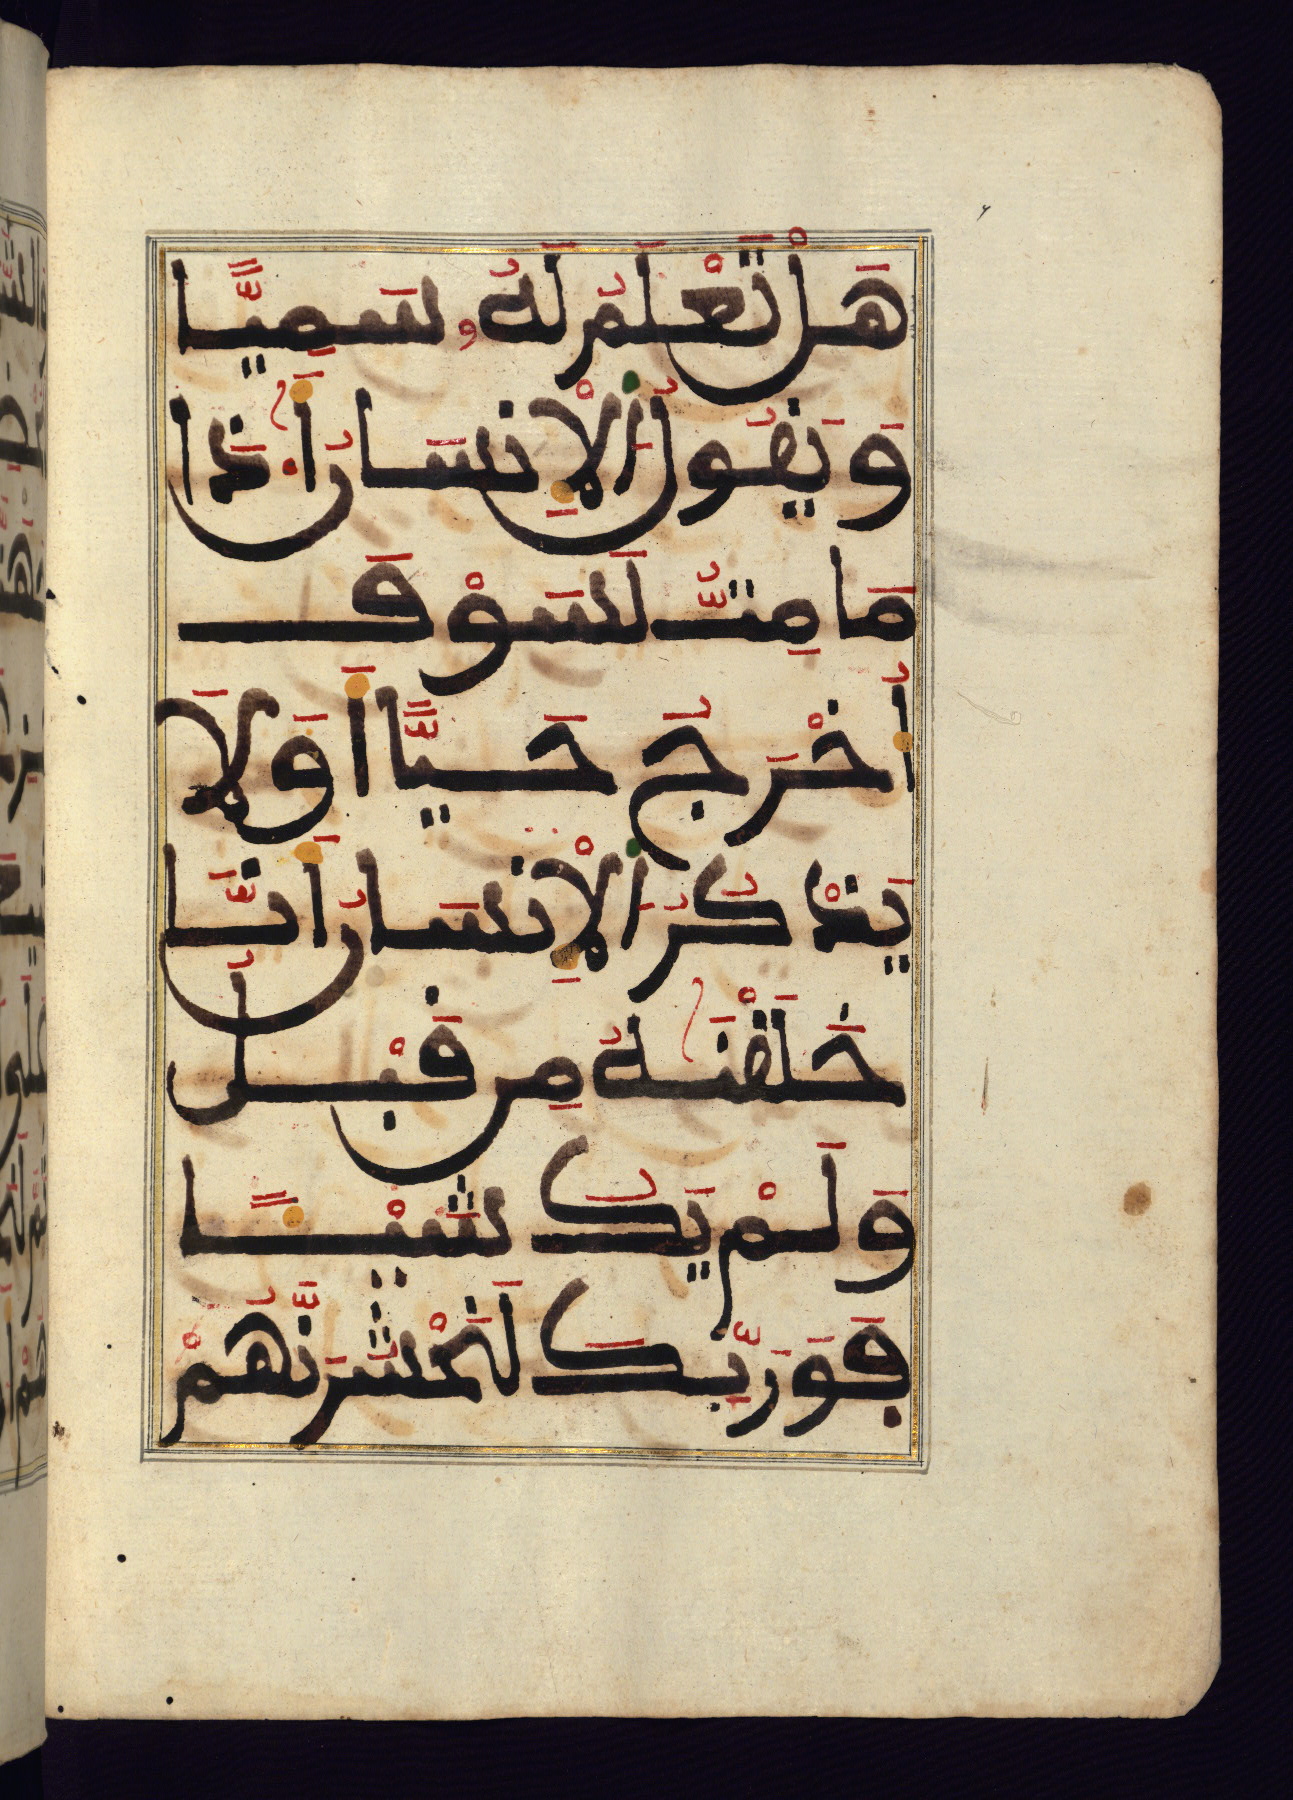 هَلْ تَعْلَمُ لَهُۥ سَمِيّٗا
وَيَقُولُ الْإِنسَٰنُ أَ.ذَا
مَا مِتُّ لَسَوْفَ
أُخْرَجُ حَيًّا أَوَلَا
يَذْكُرُ الْإِنسَانُ أَنَّا
خَلَقْنَٰهُ مِن قَبْلُ
وَلَمْ يَكُ شَيْـًٔا
فَوَرَبِّكَ لَنَحْشُرَنَّهُمْ